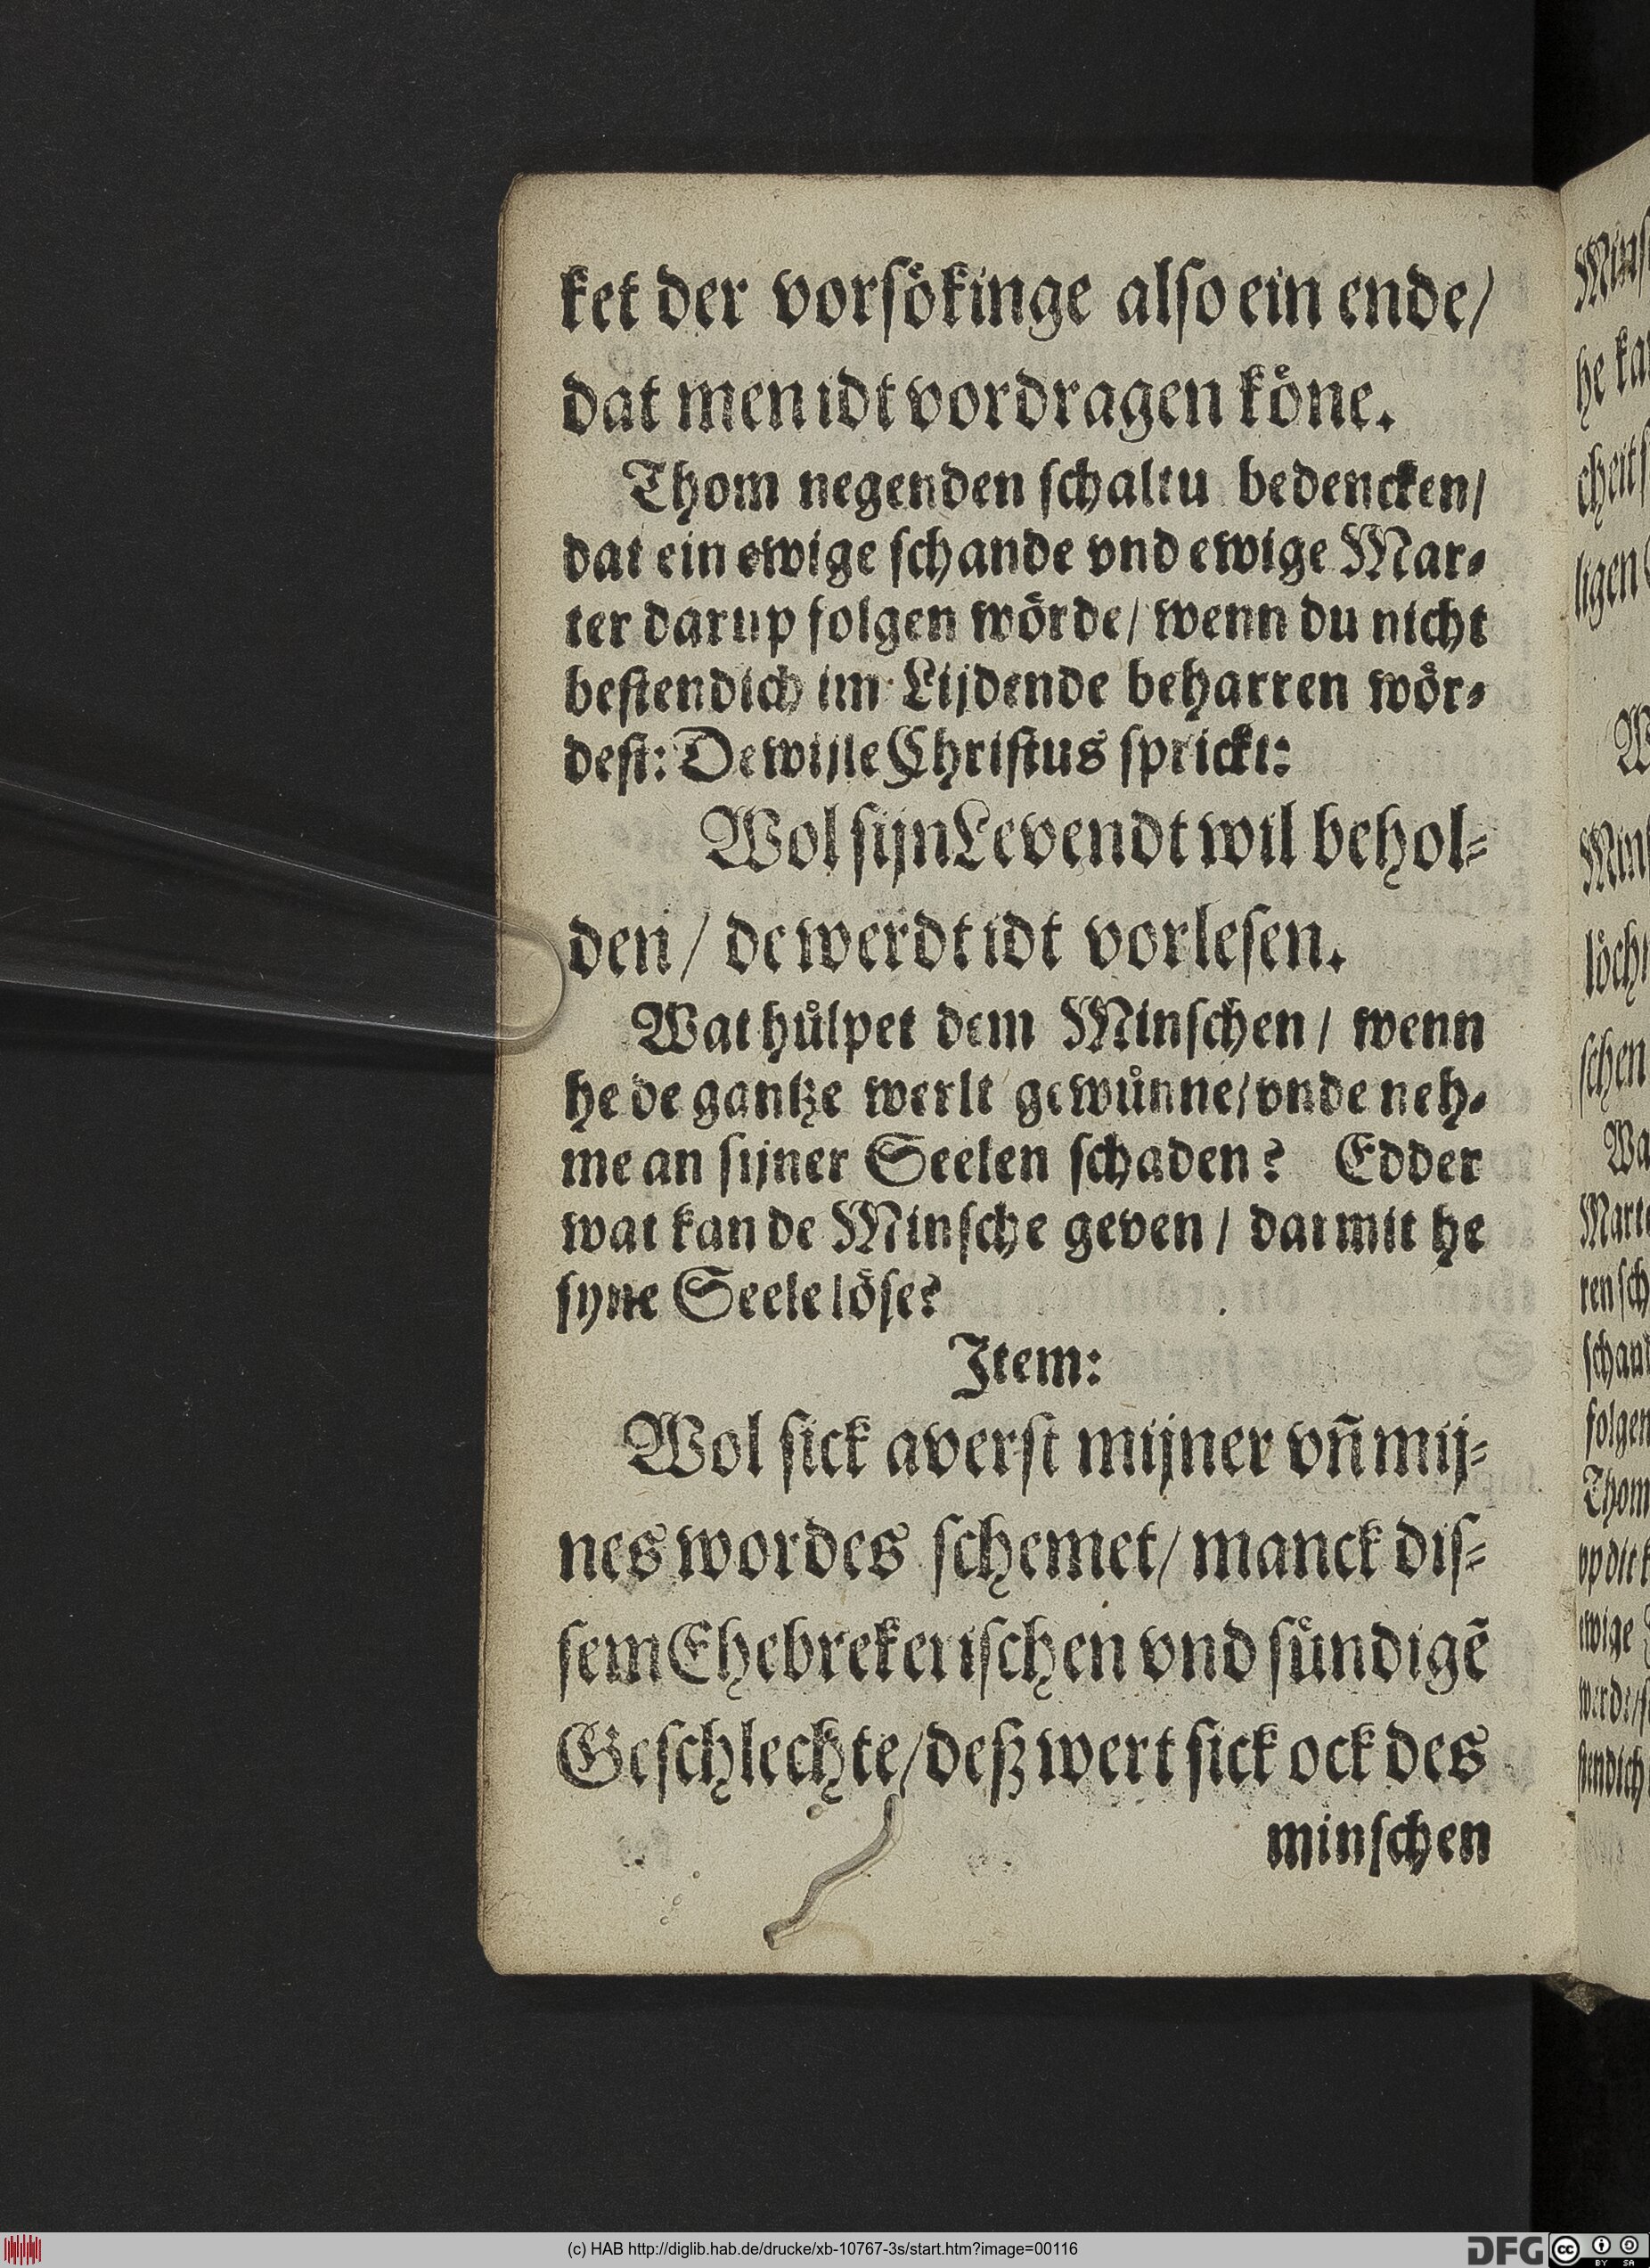 ket der vorsoͤkinge also ein ende/
dat men idt vordragen koͤne.
Thom negenden schaltu bedencken/
dat ein ewige schande vnd ewige Mar⸗
ter darup folgen woͤrde/ wenn du nicht
bestendich im Lijdende beharren woͤr⸗
dest: Dewijle Christus sprickt:
Wol sijn Levendt wil behol⸗
den/ de werdt idt vorlesen.
Wat huͤlpet dem Minschen/ wenn
he de gantze werlt gewuͤnne/ vnde neh⸗
me an sijner Seelen schaden? Edder
wat kan de Minsche geven/ darmit he
syne Seele loͤse?
Item:
Wol sick averst mijner vn̄ mij⸗
nes wordes schemet/ manck dis⸗
sem Ehebrekerischen vnd suͤndigē
Geschlechte/ deß wert sick ock des
minschen
Mins
he ka
cheit s
ligen
W
Min
loͤch
schen
Wa
Marte
ren sch
schand
folgen
Thom
vp die
ewige
werde/
stendich
(c) HAB http://diglib.hab.de/drucke/xb-10767-3s/start.htm?image=00116
DFG
cc
BY SA